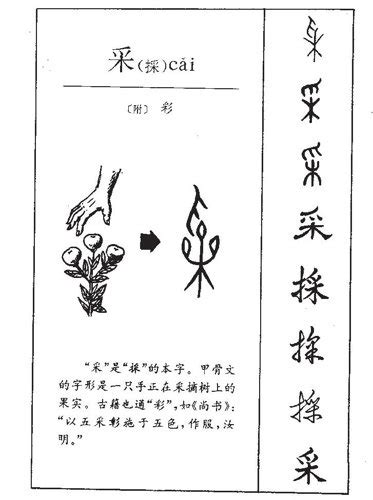 采(採)cǎi
〔附〕 彩
“采”是“採”的本字。甲骨文
的字形是一只手正在采摘树上的
果实。古籍也通“彩”,如《尚书》:
“以五采彰施于五色,作服,汝
明。”
采
采
采
采
採
採
採
采